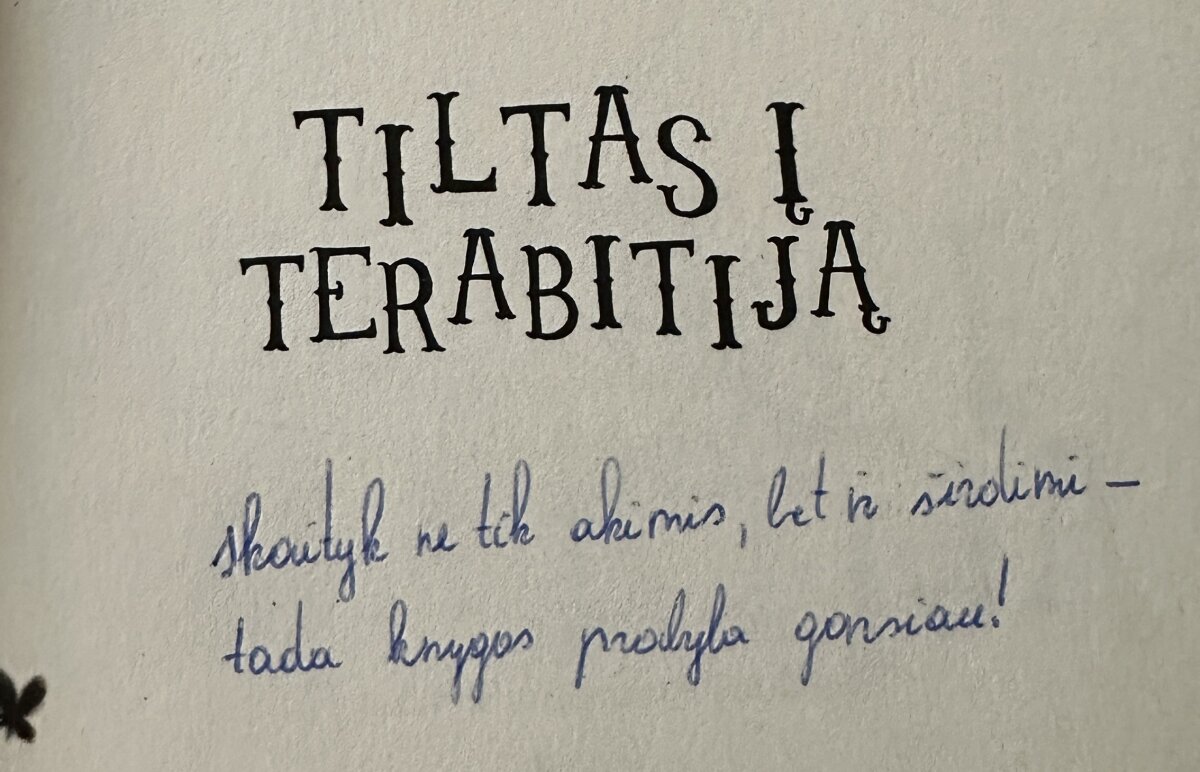 TILTAS Į
TERABITIJĄ
skaityk ne tik akimis, bet ir širdimi –
tada knygos prabyla garsiau!